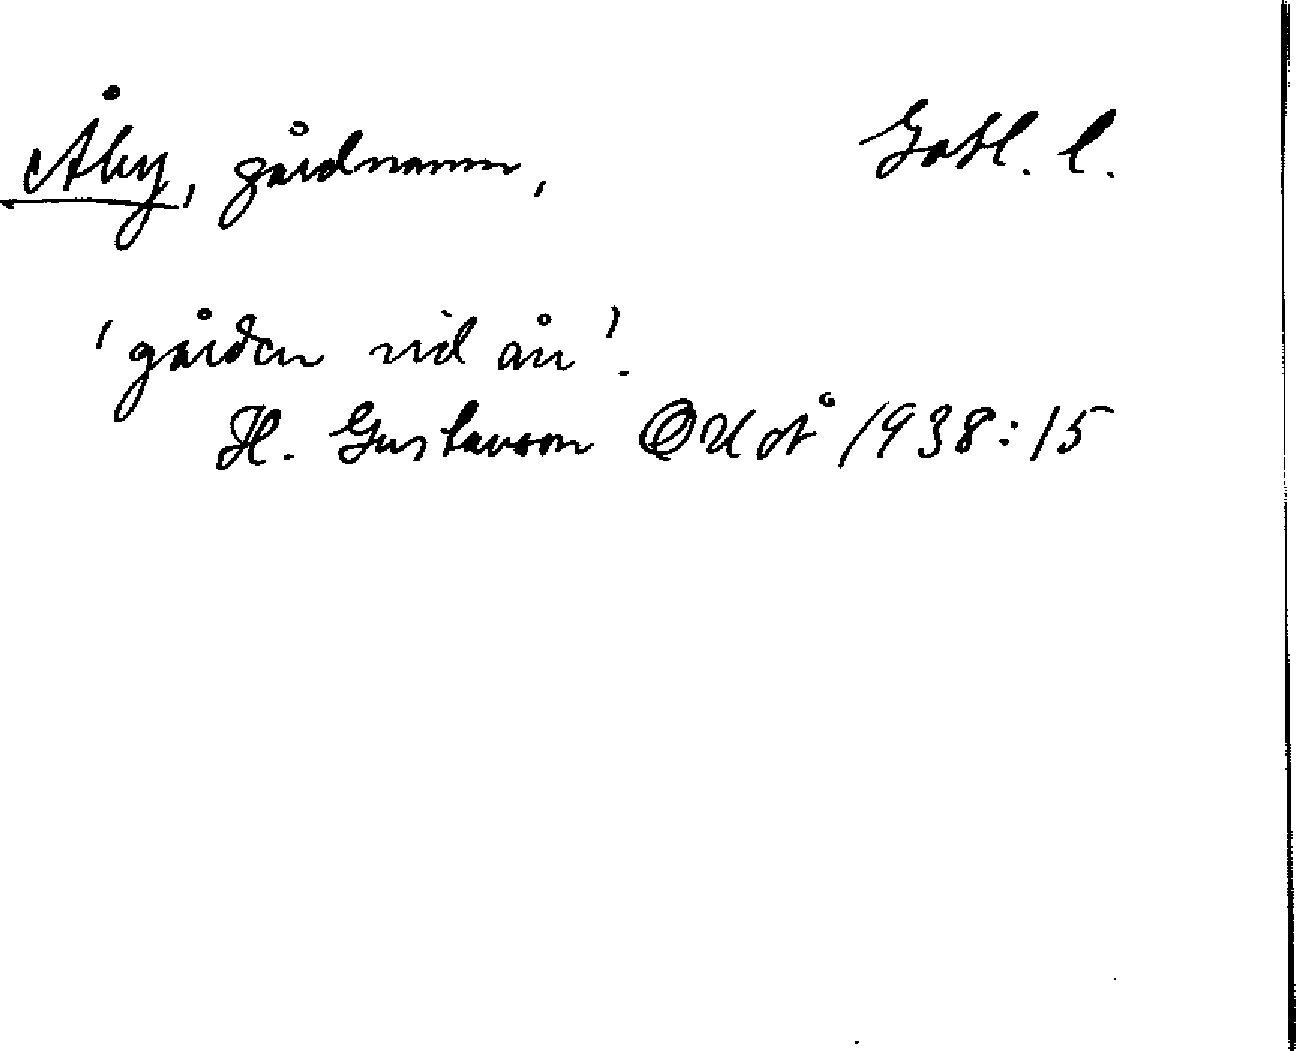 Åby, gårdnamn, Gotl. l.
'gården vid ån'.
H. Gustavson OUÅ 1938:15